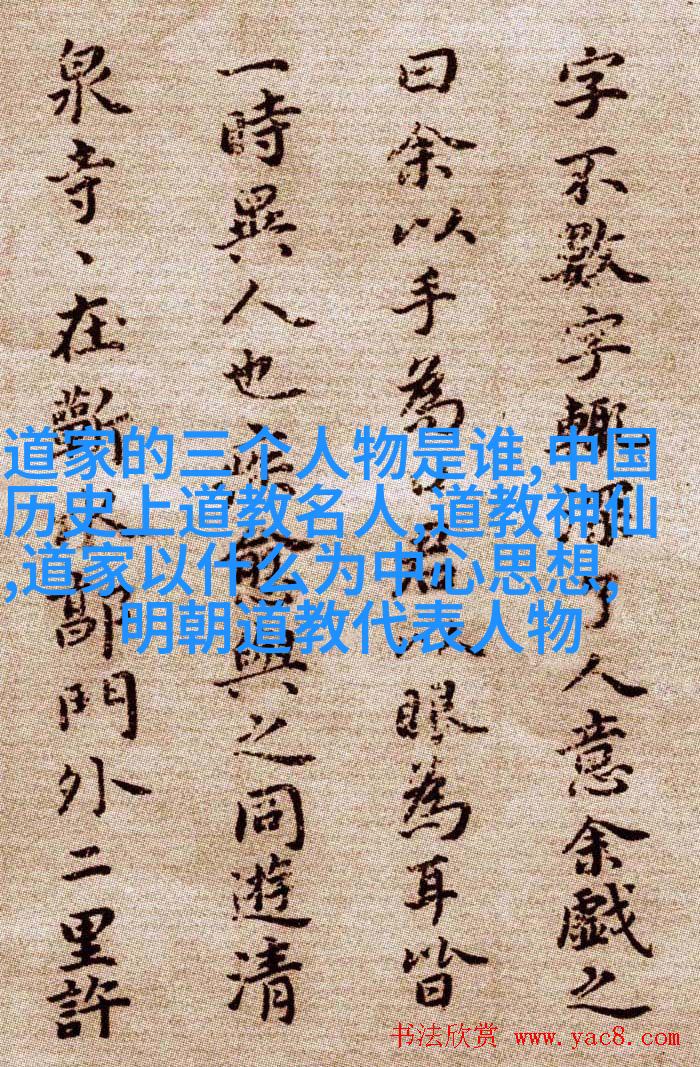 字不數字輙深了人意余戲之
曰余以手為口以眼為耳皆
一時異人也疾愈與之同遊清
泉寺、在蘄水郭門外二里許
道家的三个人物是谁,中国
历史上道教名人,道教神仙
,道家以什么为中心思想,
明朝道教代表人物
书法欣赏 www.yac8.com